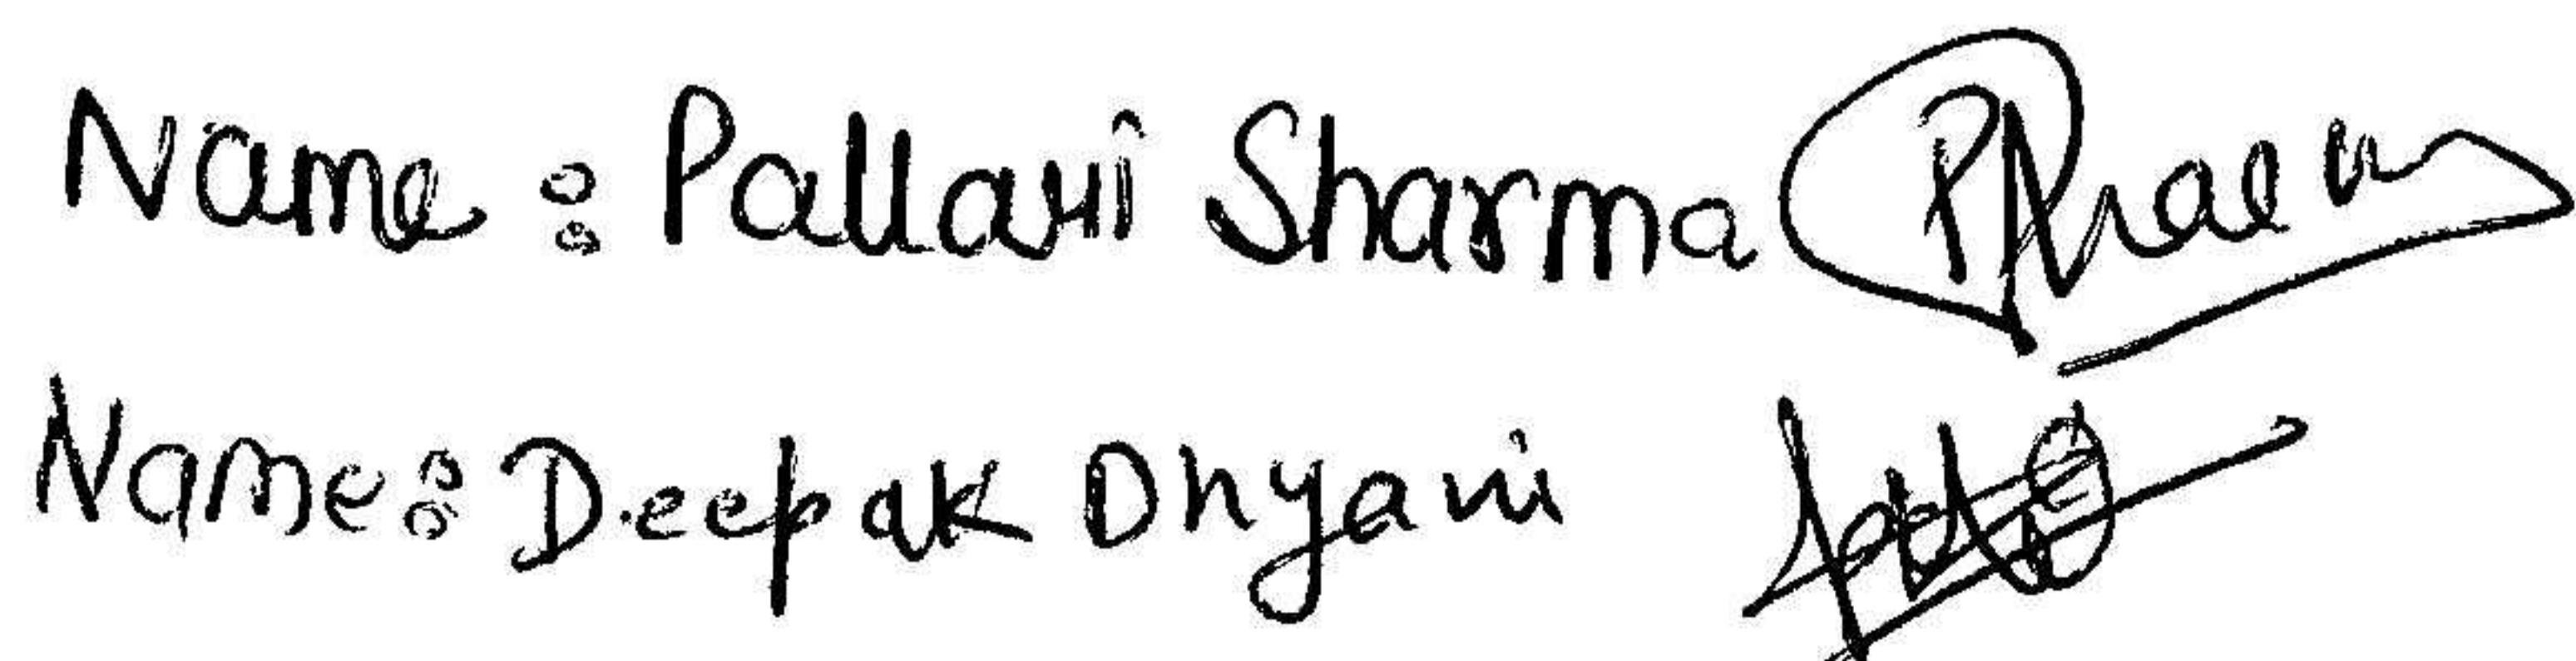 Name: Pallavi Sharma
Name: Deepak Dhyani